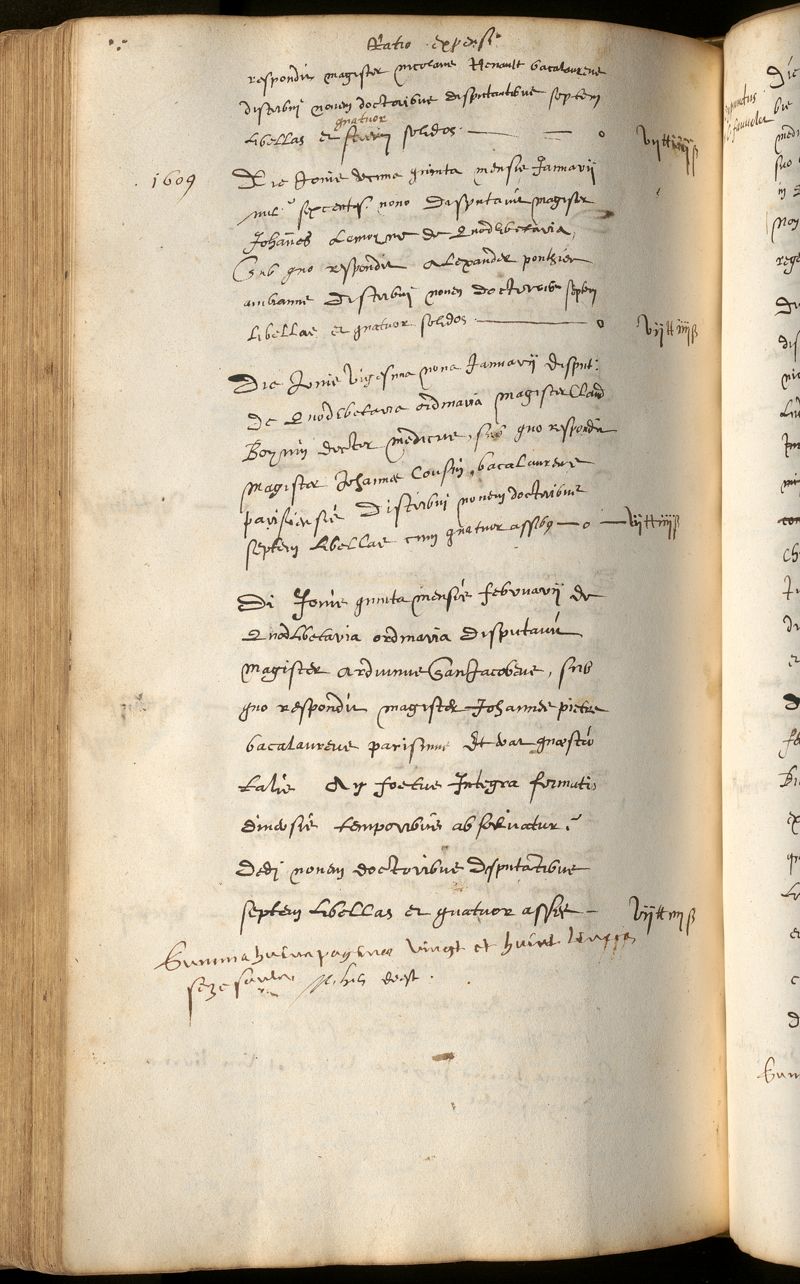 Ratio expensi
respondit magister nicolaus Renault bacalaureus
distribui novem doctoribus disputantibus septem
quatuor
libellas et solidos
vij ₶ iiij ß
1609
Die Jovis decima quinta mensis Januarii
mil.º sexcentes. nono disputavit magister
Johānes Lemoine de Quodlibetaria,
Sub quo respondit Alexander ponthier
ambianus distribui novem doctoribus septem
libellas et quatuor solidos
vij ₶ iiij ß
Die Jovis vigesima nona Januarii disput:
de Quodlibetaria ordinaria magister Claud
doctor medicus, sub quo respondit
magister Johannes Cousin, bacalaureus
parisiensis distribui novem doctoribus
septem libellas cum quatuor assibus
vij ₶ iiij ß
Di Jovis quinta mensis februarij de
Quodlibetaria ordinaria disputavit
magister Arduinus SanJacobeus, sub
quo respondit magister Johannes pietre
bacalaureus parisinus Et erat quæstio
talis An foetus Integra formatio
diversis temporibus absolvatur?
Dedi novem doctoribus disputantibus
septem libellas et quatuor asses
vij ₶ iiij ß
Summa huius paginæ vingt et huict livres
seze soulz Nihil deest.